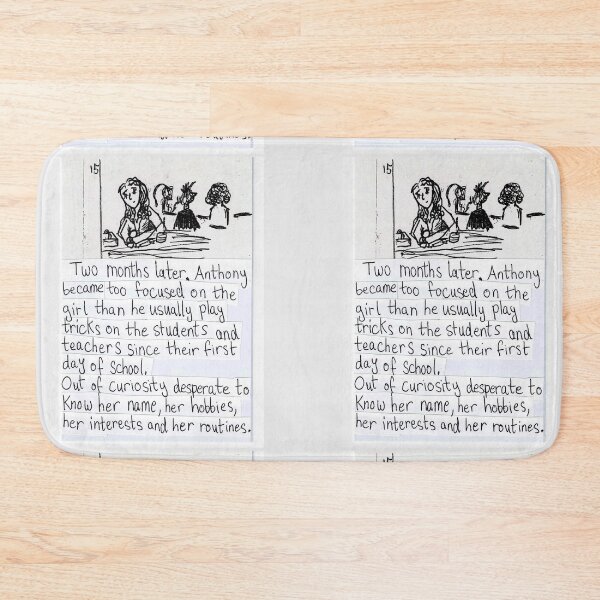 15
Two months later. Anthony
became too focused on the
girl than he usually play
tricks on the students and
teachers since their first
day of school.
Out of curiosity desperate to
Know her name, her hobbies,
her interests and her routines.
15
Two months later. Anthony
became too focused on the
girl than he usually play
tricks on the students and
teachers since their first
day of school.
Out of curiosity desperate to
Know her name, her hobbies,
her interests and her routines.